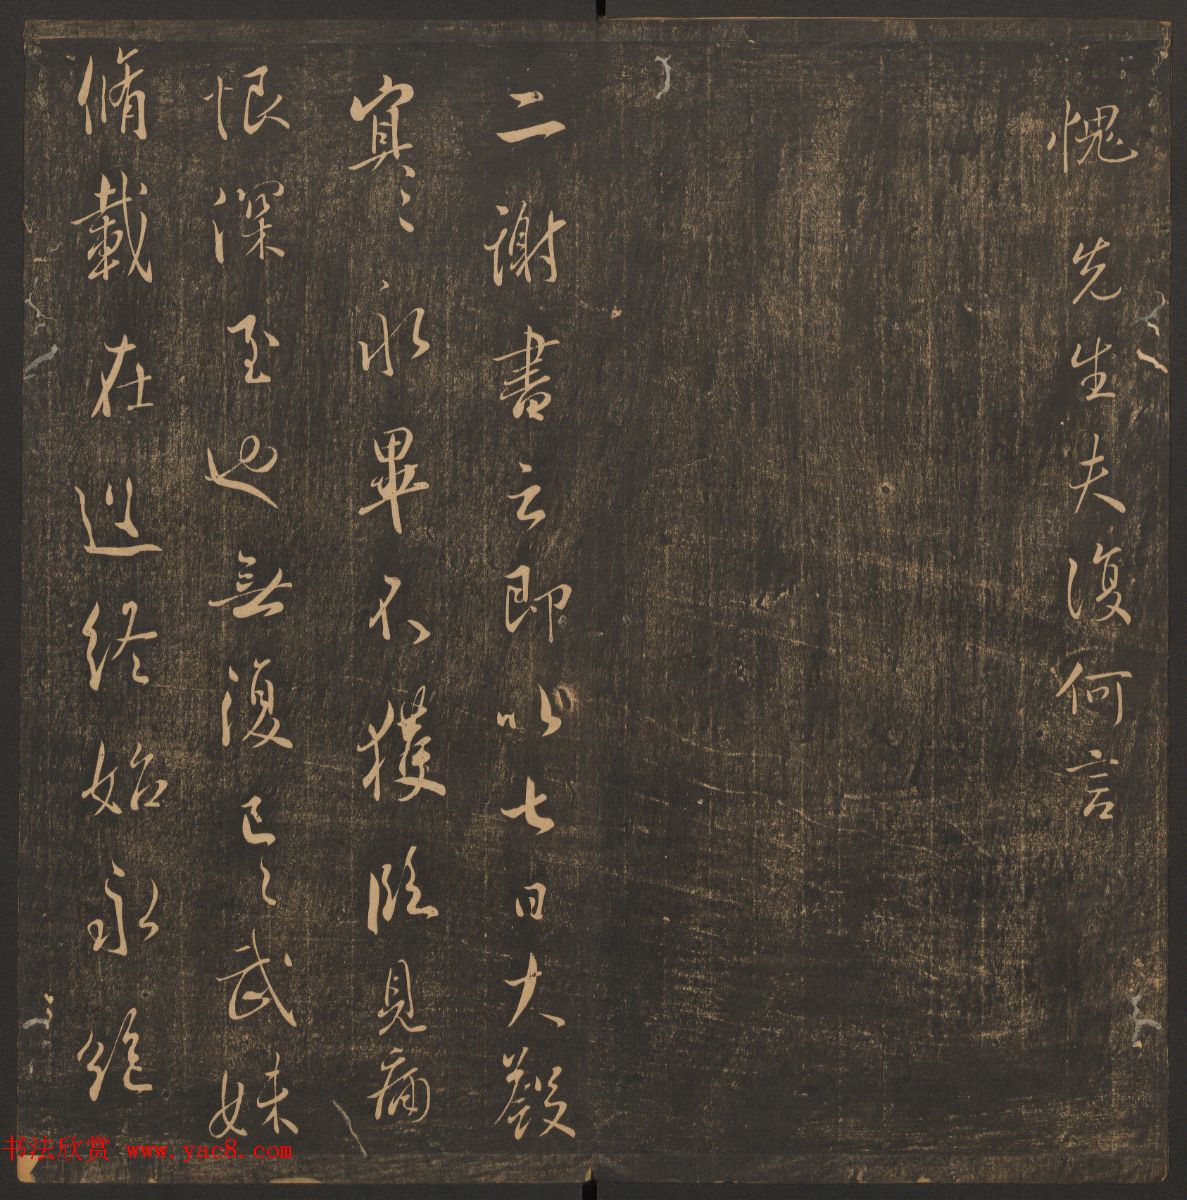 愧 先生夫復何言
二謝書云即以七日大殮
冥〻永畢不獲臨見痛
恨深至也無復已〻武妹
脩載在道終始永絕
书法欣赏 www.yac8.com